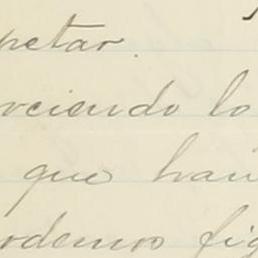 petar.
rciendo lo
que han
odemos fig